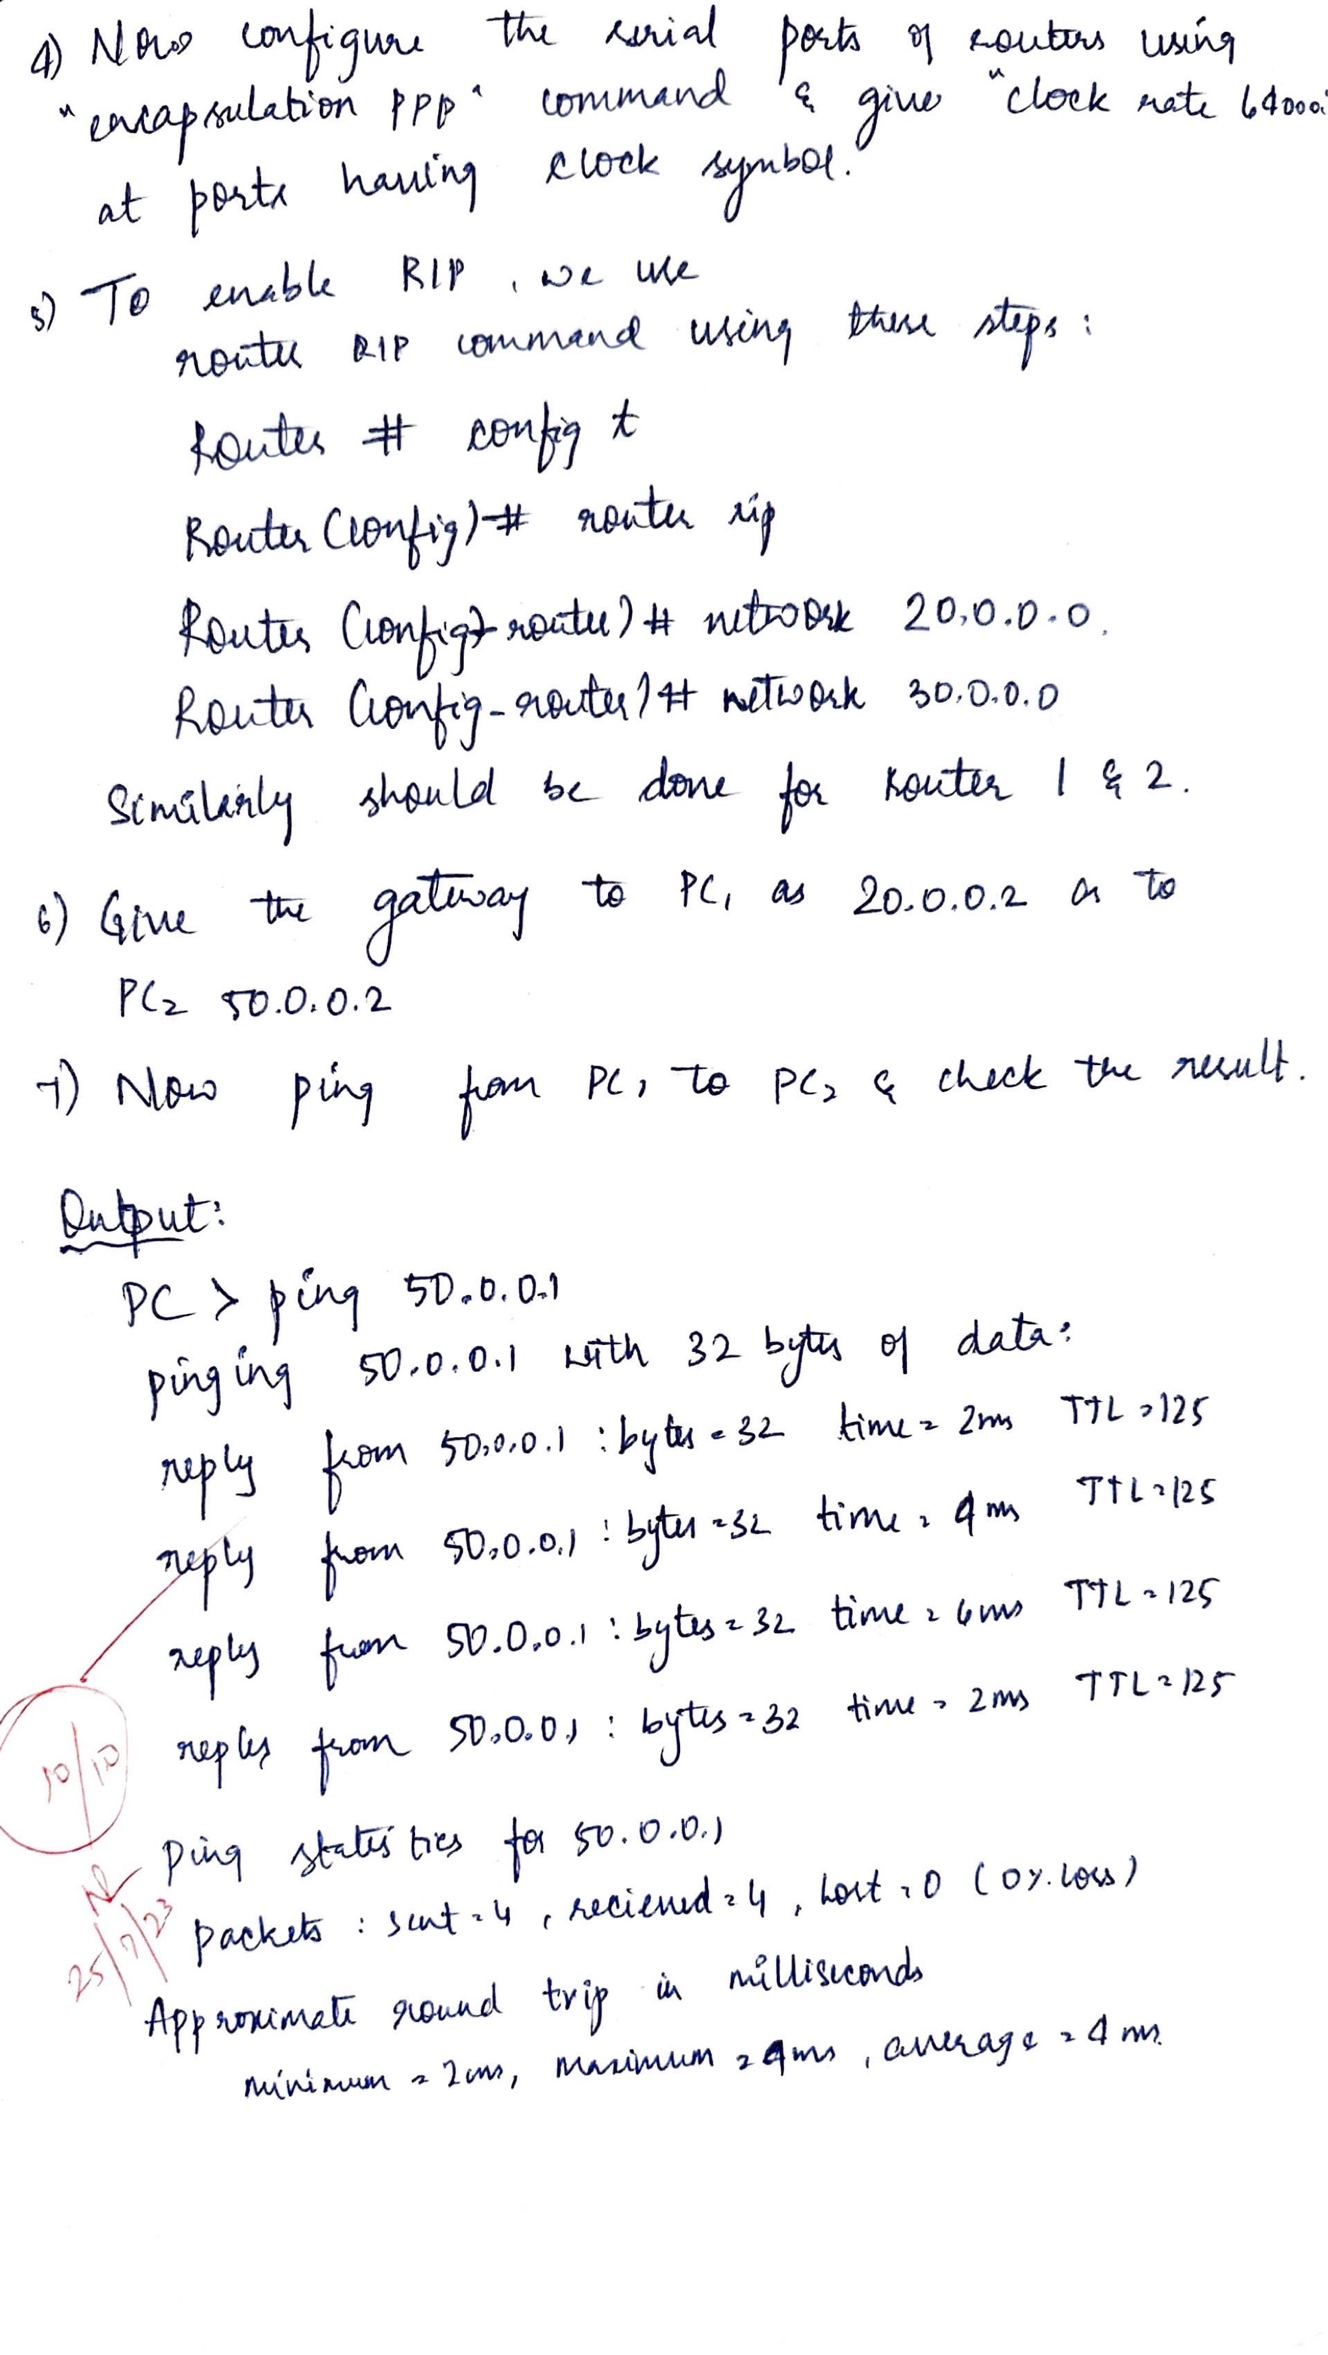 4) Now configure the serial ports of routers using
"encapsulation PPP" command & give "clock rate 64000"
at ports having clock symbol.
5) To enable RIP, we use
router RIP command using these steps:
Router # config t
Router (config)# router rip
Router (config-router)# network 20.0.0.0.
Router (config-router)# network 30.0.0.0
Similarly should be done for Router 1 & 2.
6) Give the gateway to PC1 as 20.0.0.2 & to
PC2 50.0.0.2
7) Now ping from PC1 to PC2 & check the result.
Output:
PC > ping 50.0.0.1
pinging 50.0.0.1 with 32 bytes of data:
reply from 50.0.0.1 : bytes = 32 time = 2ms TTL = 125
reply from 50.0.0.1 : bytes = 32 time = 9ms TTL = 125
reply from 50.0.0.1 : bytes = 32 time = 6ms TTL = 125
reply from 50.0.0.1 : bytes = 32 time = 2ms TTL = 125
10/10
Ping statistics for 50.0.0.1
Packets : sent = 4, recieved = 4, Lost = 0 (0% loss)
25/7/23
Approximate round trip in milliseconds
minimum = 2ms, maximum = 9ms, average = 4ms